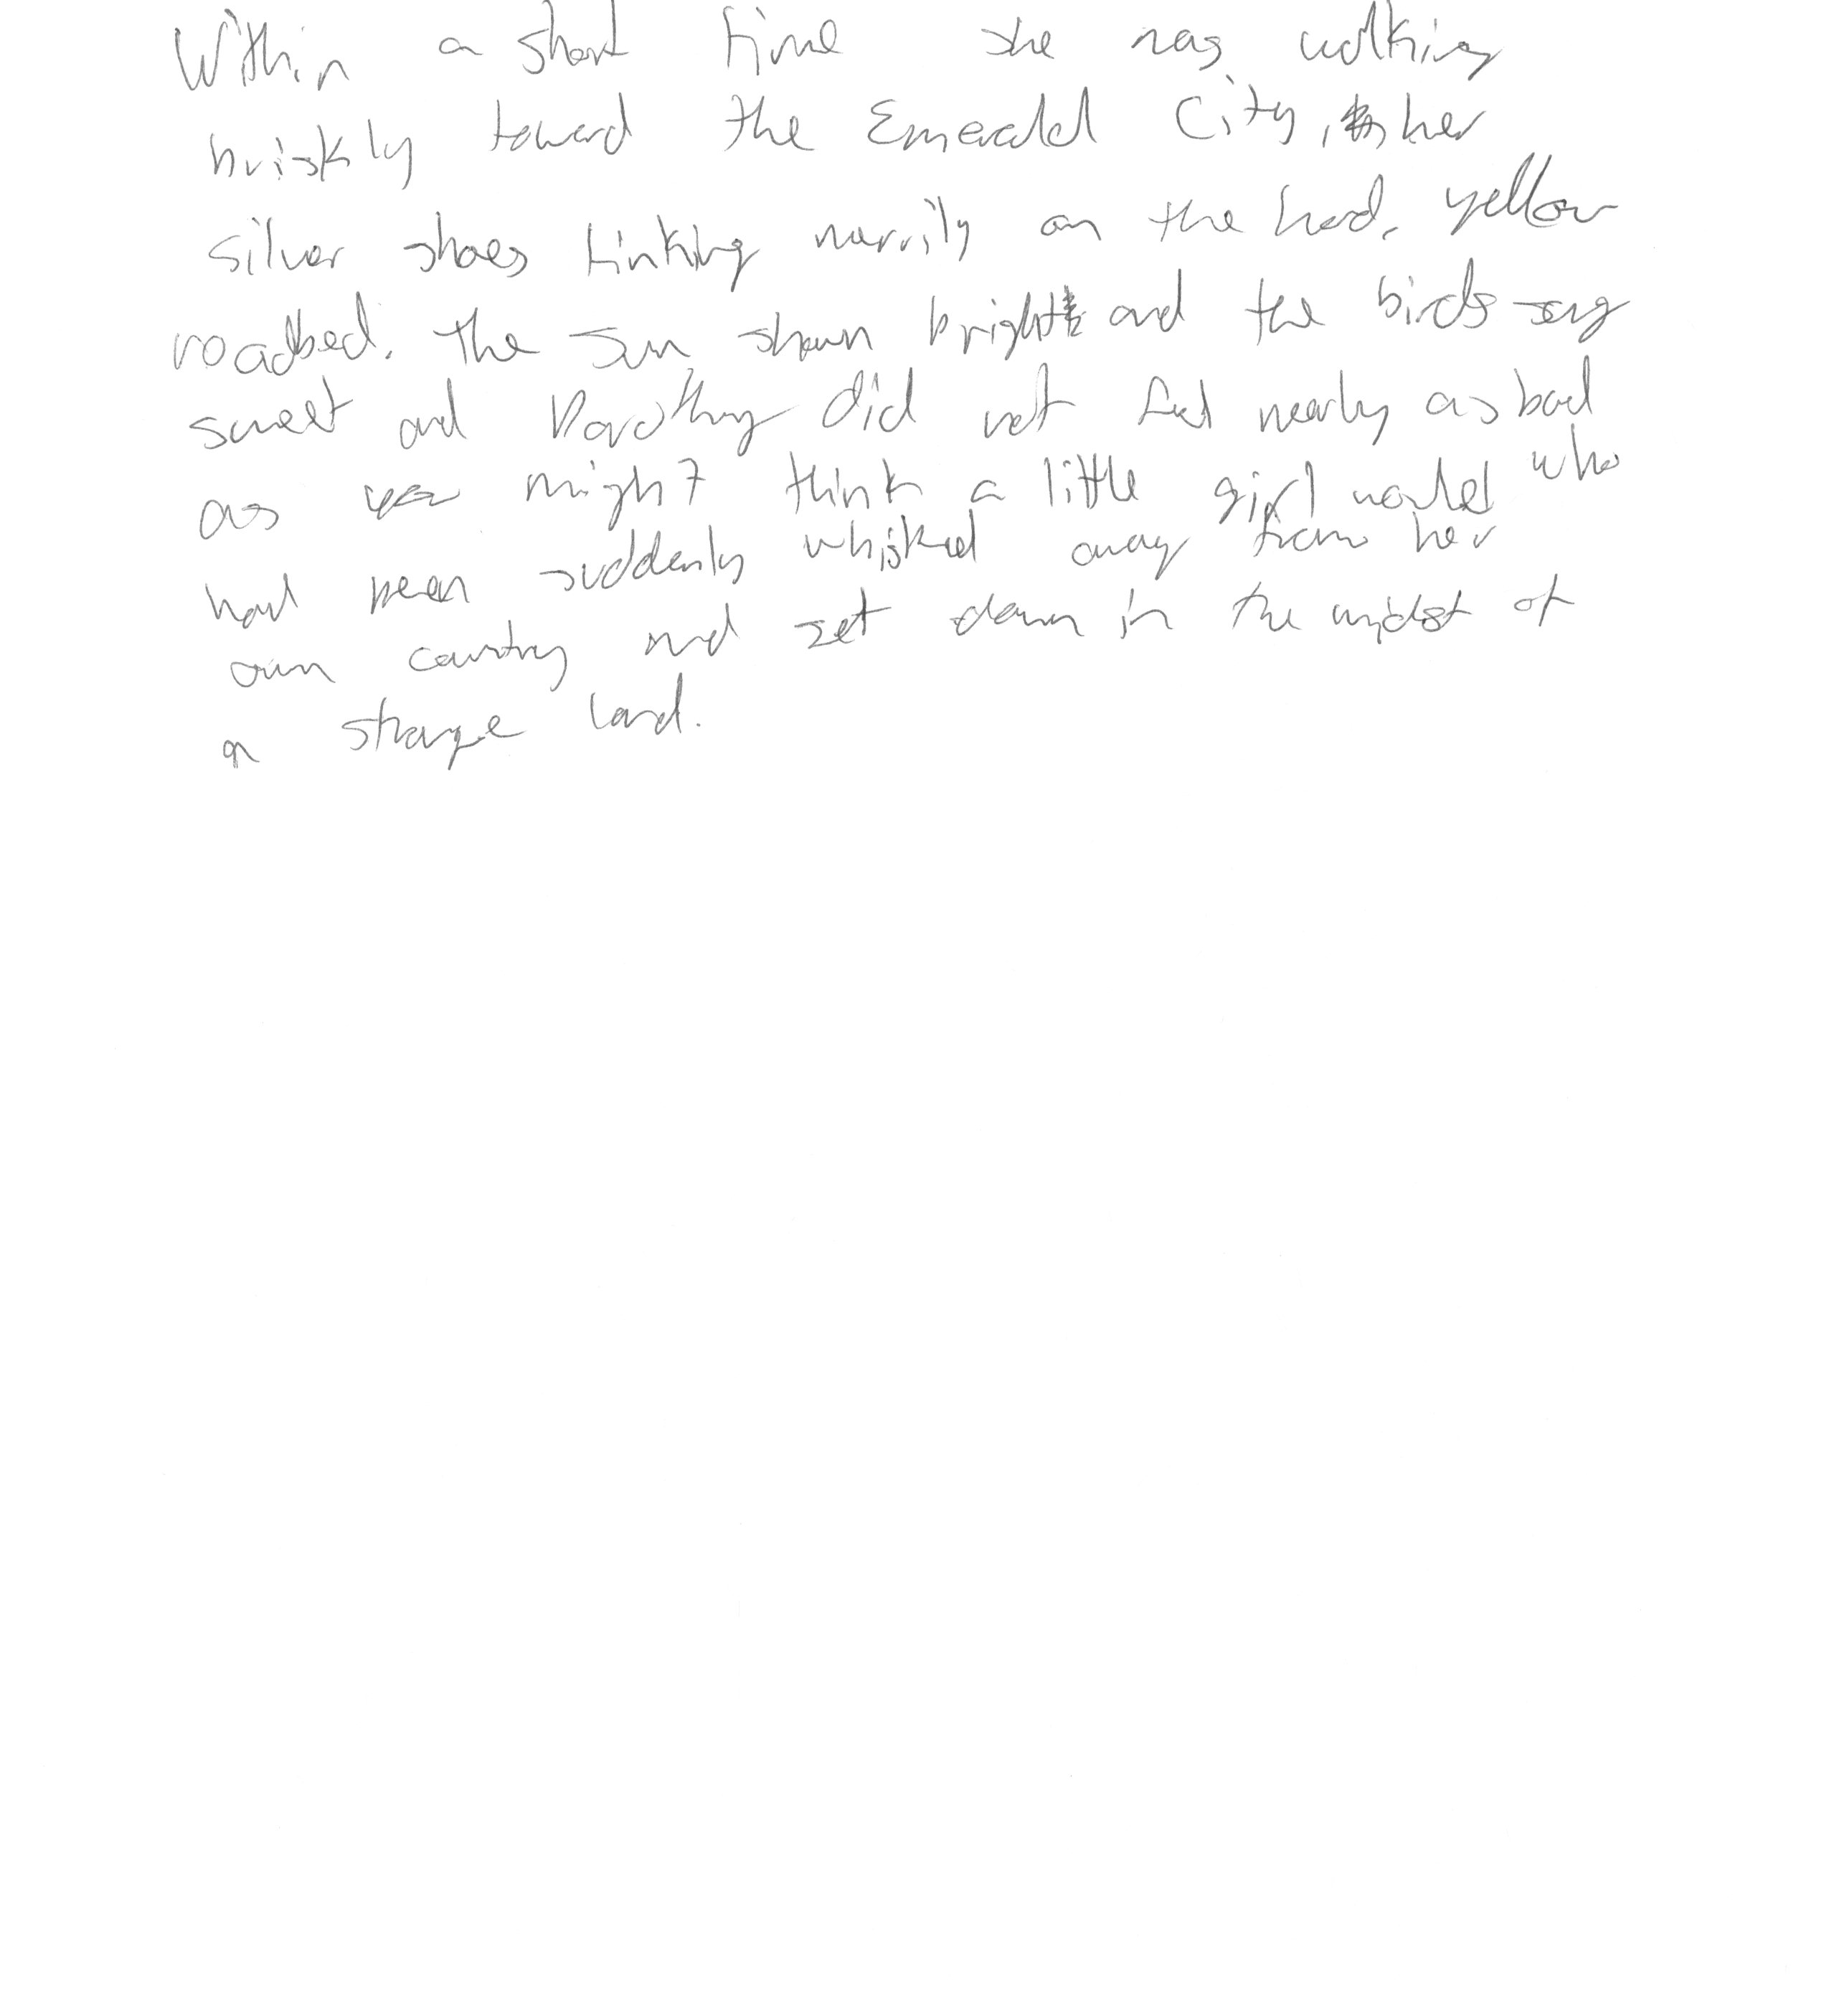 Within a short time she was walking
briskly toward the Emerald City, her
silver shoes tinkling merrily on the hard, yellow
roadbed. The sun shown bright and the birds sang
sweet and Dorothy did not feel nearly as bad
as you might think a little girl would who
had been suddenly whisked away from her
own country and set down in the midst of
a strange land.